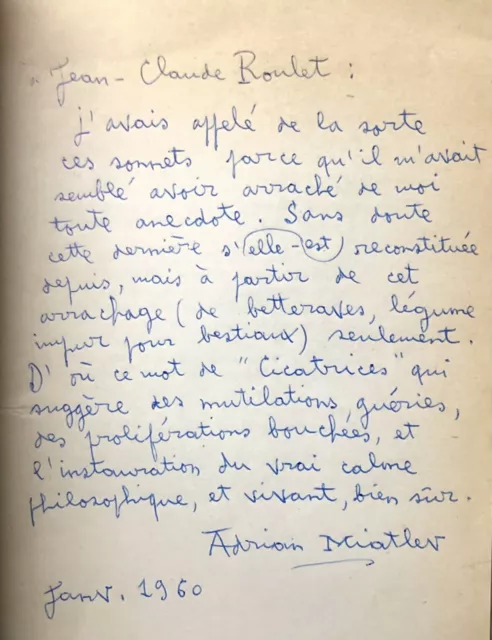 à Jean-Claude Roulet :
j'avais appelé de la sorte
ces sonnets parce qu'il m'avait
semblé avoir arraché de moi
toute anecdote. Sans doute
cette dernière s'elle-est reconstituée
depuis, mais à partir de cet
arrachage (de betteraves, légume
impur pour bestiaux) seulement.
D'où ce mot de "Cicatrices" qui
suggère des mutilations guéries,
des proliférations bouchées, et
l'instauration du vrai calme
philosophique, et vivant, bien sûr.
Adrian Miatlev
Janv. 1960